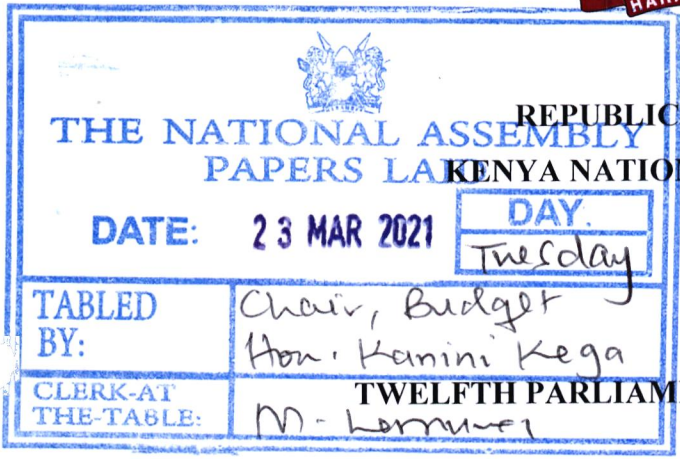 HAN
REPUBLIC
THE NATIONAL ASSEMBLY
PAPERS LAID
KENYA NATIO
DATE: 23 MAR 2021
DAY.
Tuesday
TABLED
BY:
Chair, Budget
Hon. Kanini Kega
TWELFTH PARLIAM
CLERK-AT
THE-TABLE:
M.